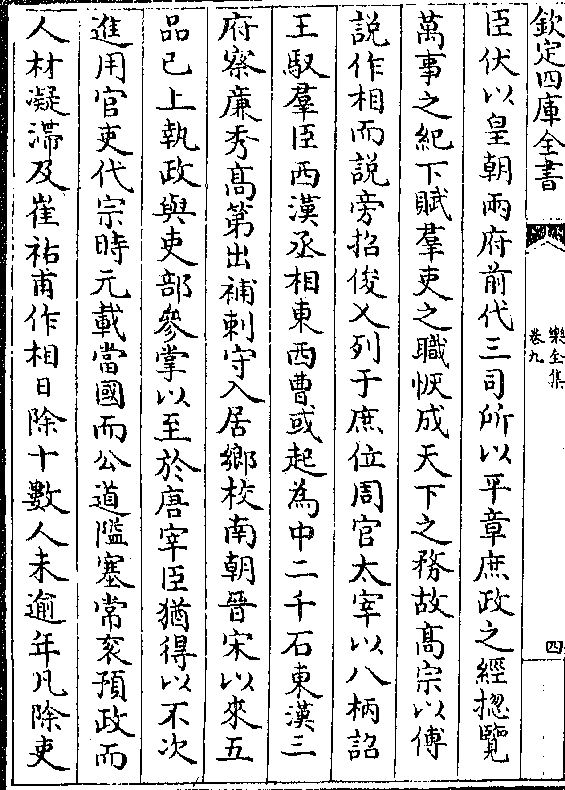 欽定四庫全書
樂全集
卷九
四
臣伏以皇朝兩府前代三司所以平章庶政之經揔覽
萬事之紀下賦羣吏之職恢成天下之務故髙宗以傅
說作相而說旁招俊乂列于庶位周官太宰以八柄詔
王馭羣臣西漢丞相東西曹或起為中二千石東漢三
府察亷秀髙第出補刺守入居鄉校南朝晉宋以來五
品已上執政與吏部參掌以至於唐宰臣猶得以不次
進用官吏代宗時元載當國而公道隘塞常衮預政而
人材凝滯及崔祐甫作相日除十數人未逾年凡除吏